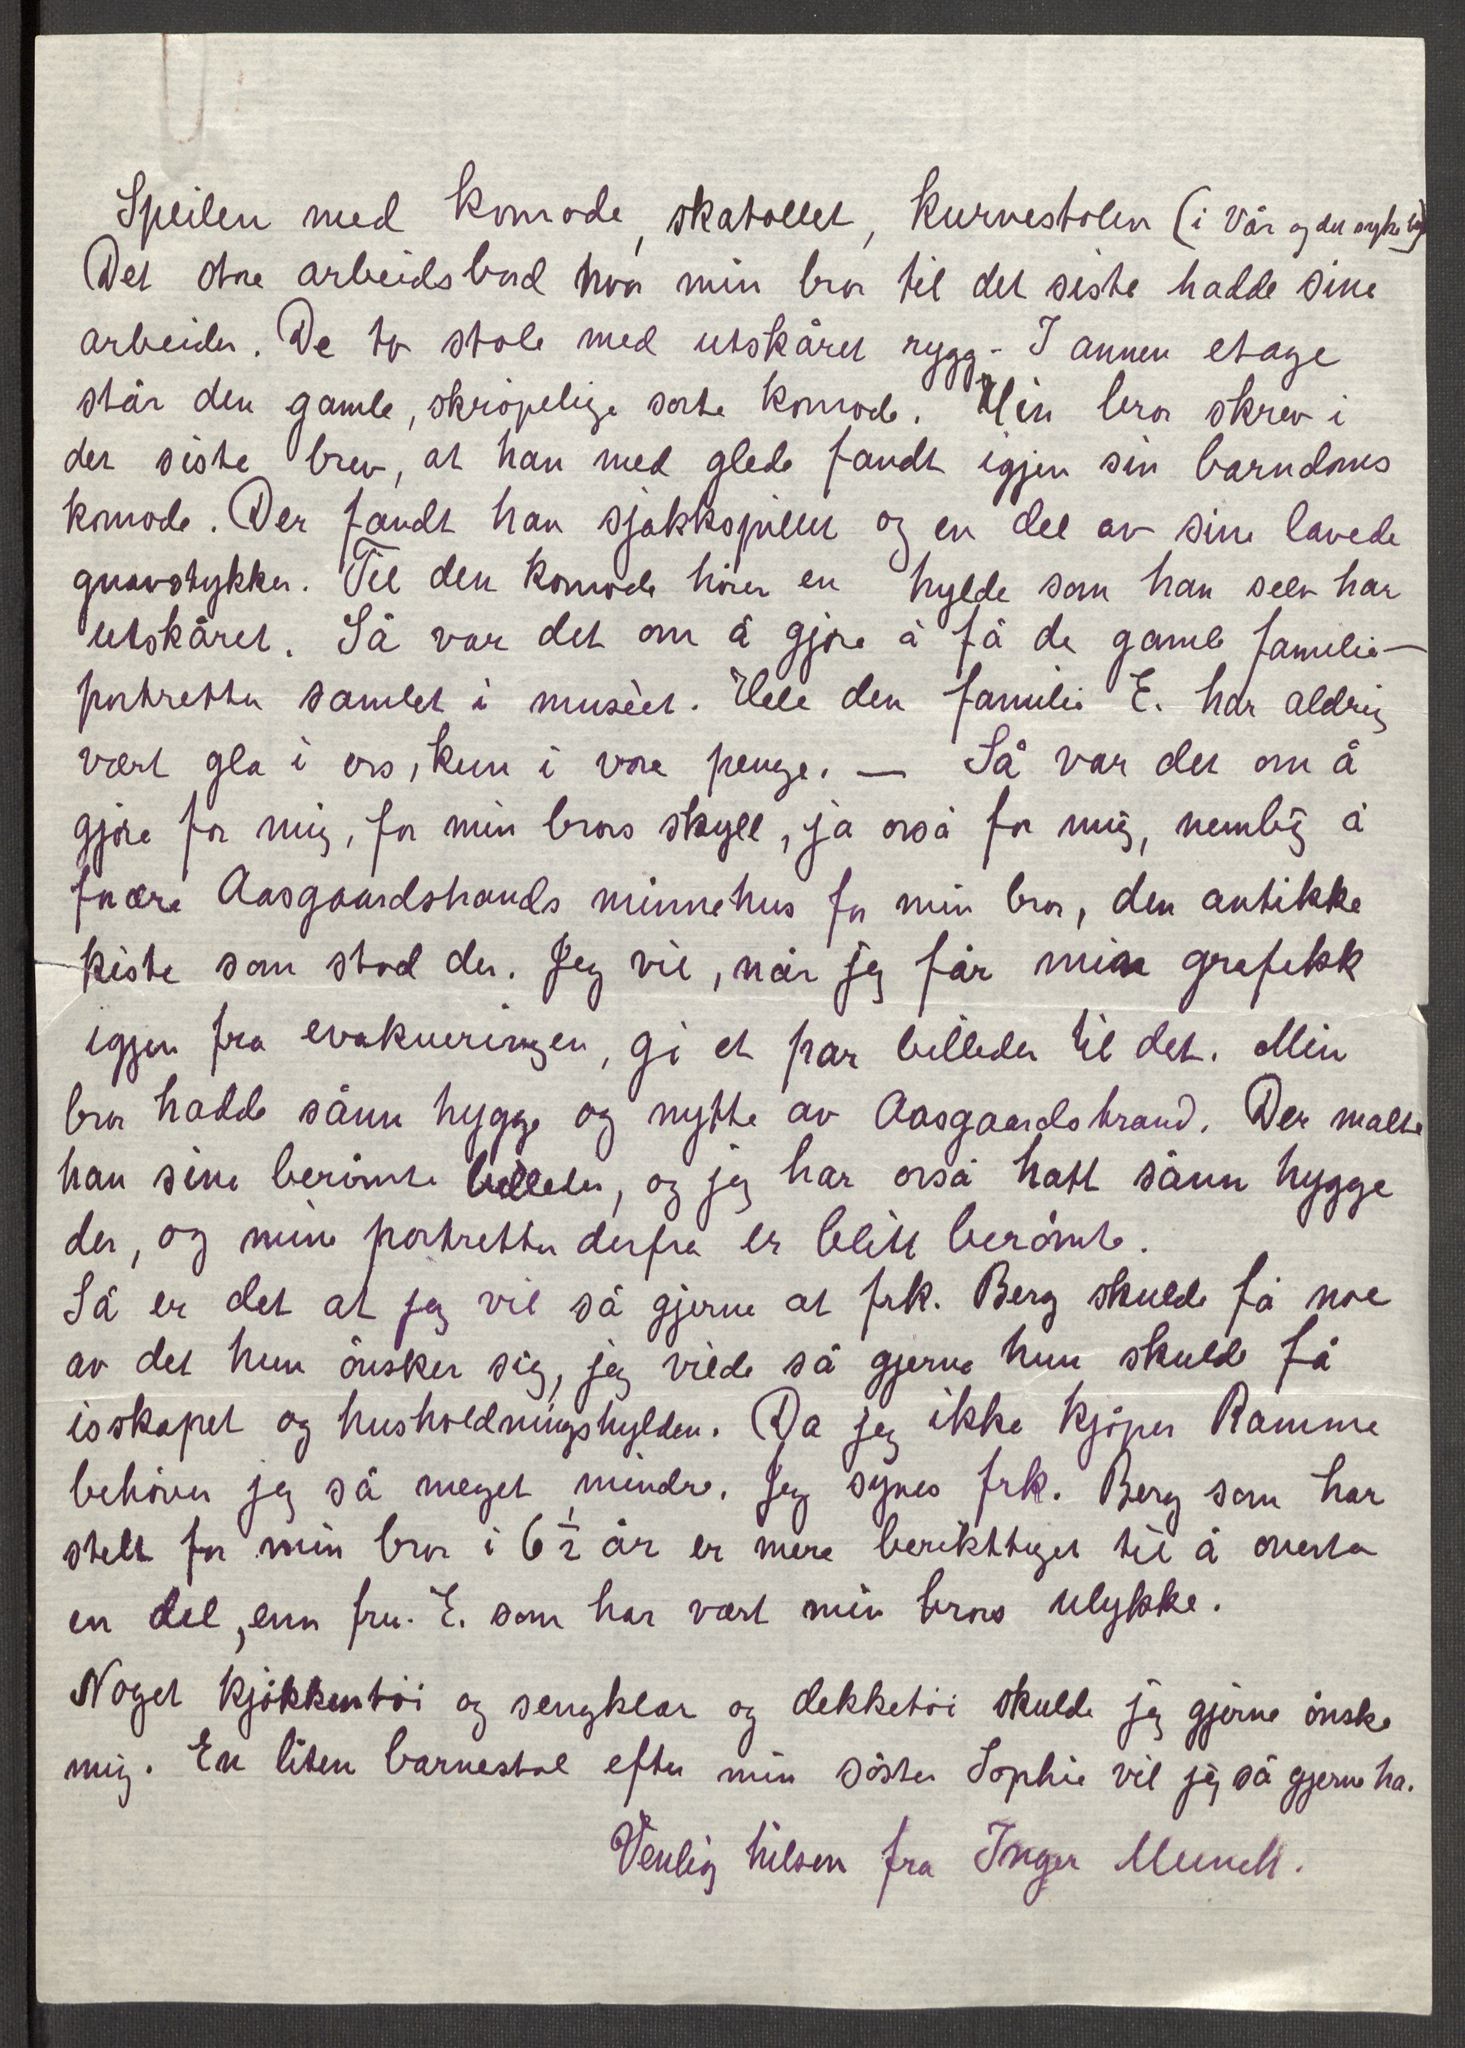 Speilen med komode, skatollet, kurvestolen (i Vår og det syke
Det store arbeidsbord hvor min bror til det siste hadde sine
arbeider. De to stole med utskåret rygg - I annen etage
står den gamle, skrøpelige sorte komode. Min bror skrev i
det siste brev, at han med glede fandt igjen sin barndoms
komode. Der fandt han sjakkspillet og en del av sine lavede
gnavstykker. Til den komode hører en hylde som han selv har
utskåret. Så var det om å gjøre å få de gamle familie-
portretter samlet i muséet. Hele den familie E. har aldrig
vært gla i oss, kun i vore penge. — Så var det om å
gjøre for mig, for min brors skyll, ja også for mig, nemlig å
foære Aasgaardstrands minnehus for min bror, den antikke
kiste som stod der. Jeg vil, når jeg får min grafikk
igjen fra evakueringen, gi et par billeder til det. Min
bror hadde sånn hygge og nytte av Aasgaardstrand. Der malte
han sine berømte billeder, og jeg har også hatt sånn hygge
der, og mine portretter derfra er blitt berømte.
Så er det at jeg vil så gjerne at frk. Berg skulde få noe
av det hun ønsker sig, jeg vilde så gjerne hun skulde få
isskapet og husholdningshylden. Da jeg ikke kjøper Ramme
behøver jeg så meget mindre. Jeg synes frk. Berg som har
stelt for min bror i 6½ år er mere berikttiget til å overta
en del, enn fru. E. som har vært min brors ulykke.
Noget kjøkkentøi og sengklær og dekketøi skulde jeg gjerne ønske
mig. En liten barnestol efter min søster Sophie vil jeg så gjerne ha.
Venlig hilsen fra Inger Munch.